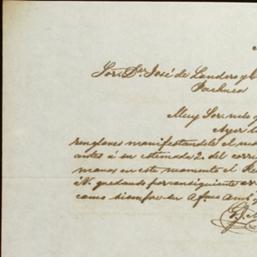 Sor. Dn. José de Landero y C
Pachuca
Muy Sor. mio y
Ayer
renglones manifestandole el
antes á su estimada 2. del corri
manos en este momento el
N. quedando por consiguiente
como siempre su Afmo. Amo. y